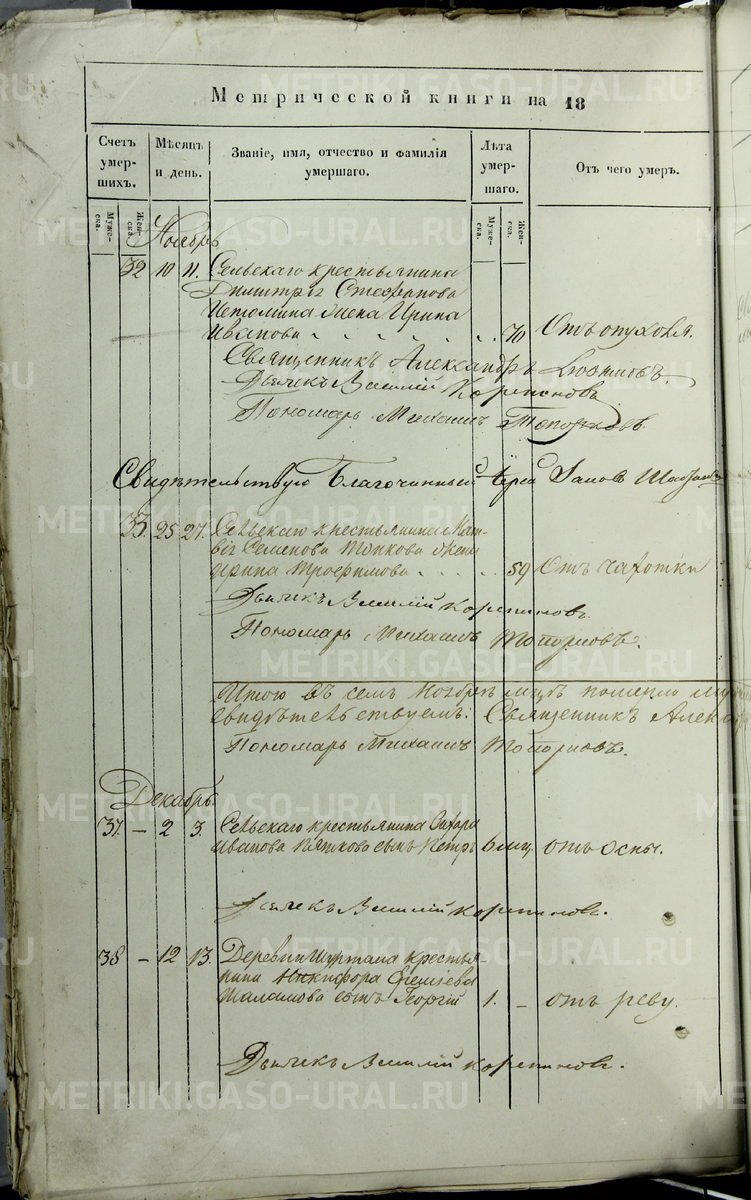 Метрической книги на 18
Счетъ умер-шихъ.
Мѣсяцъ и день.
Званіе, имя, отчество и фамилія умершаго.
Лѣта умер-шаго.
Отъ чего умеръ.
Муже-ска.
Жен-ска.
Муже-ска.
Жен-ска.
Ноябрь
32 10 11. Сельскаго крестьянина
Димитрія Стефанова
жена Ирина
Иванова 70 Отъ опухоли.
Священникъ Александръ
Дьячекъ Василій Корепановъ.
Пономарь Михаилъ Топорковъ.
Свидѣтельствую Благочинный Іерей
33. 25 27. Сельскаго крестьянина Мат-
вія Семенова жена
Ирина Трофимова 59 Отъ чахотки
Дьячекъ Василій Корепановъ.
Пономарь Михаилъ Топорковъ.
Итого въ семъ Ноябрѣ м-цѣ померло
Свидѣтельствуемъ: Священникъ Алекса
Пономарь Михаилъ Топорковъ.
Декабрь.
37. – 2 3. Сельскаго крестьянина
Иванова Пяткова сынъ Петръ 6 мц. отъ оспы.
Дьячекъ Василій Корепановъ.
38 – 12 13. Деревни Шуртана крестья-
нина Никифора
Шаламова сынъ Георгій 1. – отъ реву.
Дьячекъ Василій Корепановъ.
METRIKI.GASO-URAL.RU